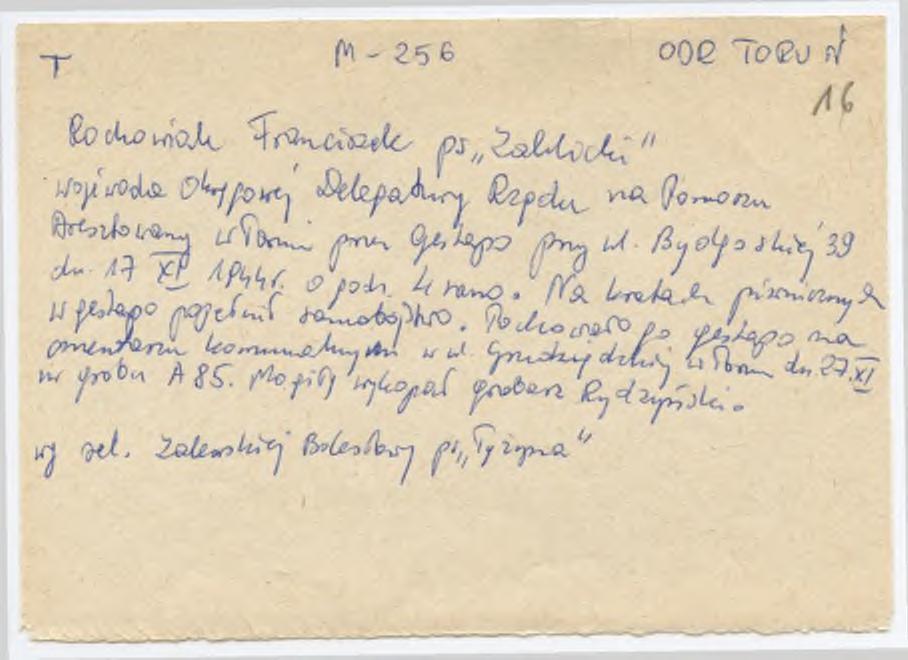 T M-256 ODR TORUŃ
16
Rochowiak Franciszek ps „Zabłocki"
wojewoda Okręgowej Delegatury Rządu na Pomorzu
Aresztowany w Toruniu przez gestapo przy ul. Bydgoskiej 39
dn. 17 XI 1944r. o godz. 4 rano. Na kratach piwnicznych
w gestapo popełnił samobójstwo. Pochowało go gestapo na
cmentarzu komunalnym w ul. Grudziądzkiej w Toruniu dn. 27.XI
nr grobu A 85. Mogiłę wykopał grabarz Rydzyński.
wg rel. Zalewskiej Bolesławy ps „